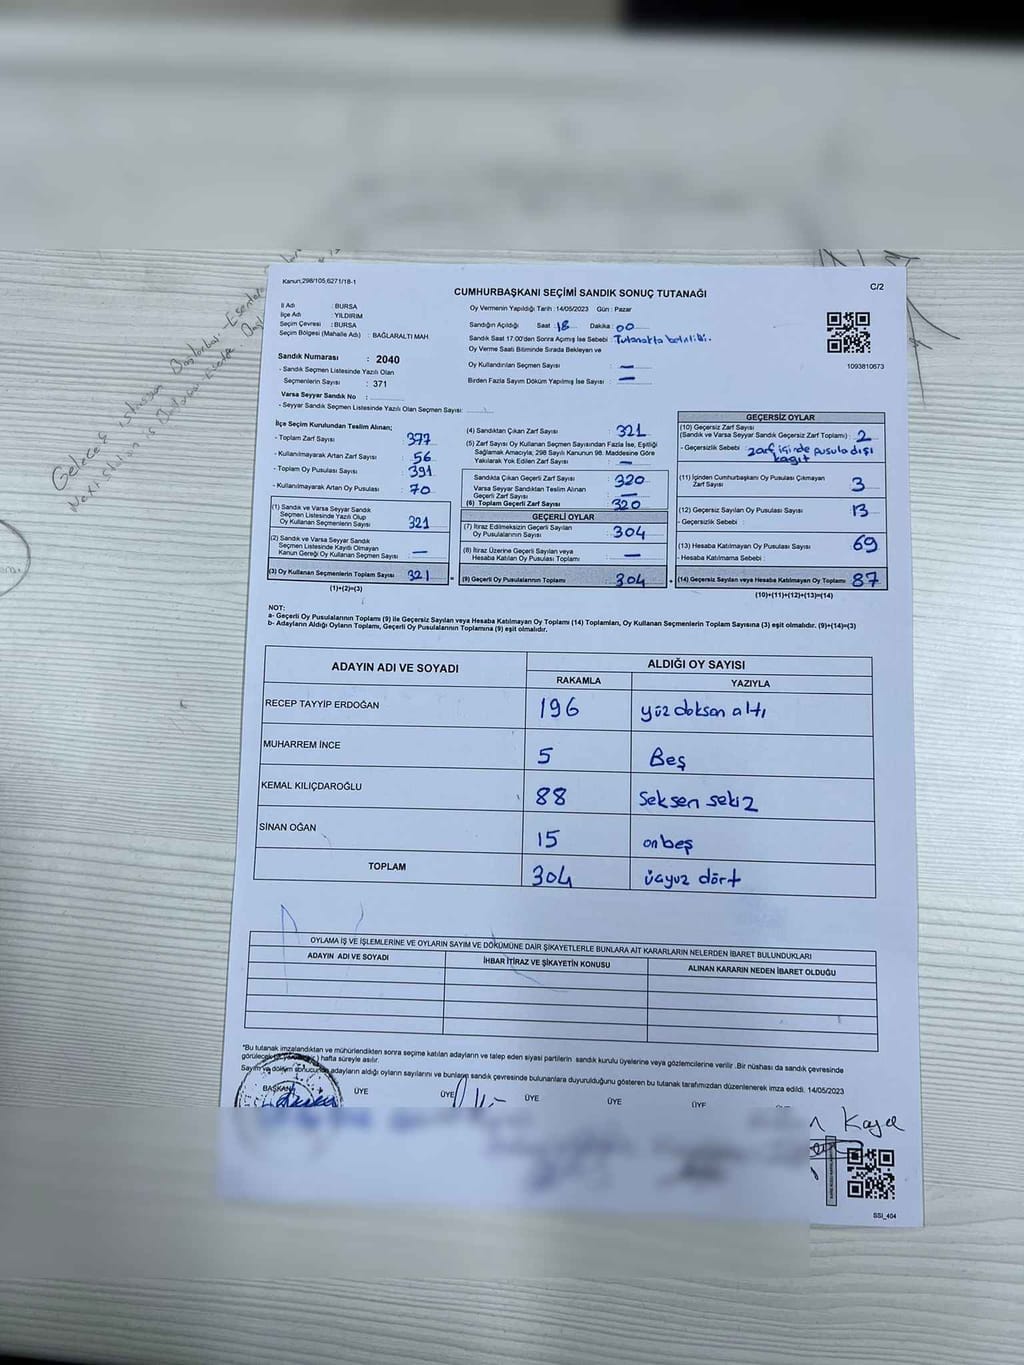 Kanun,298/105,6271/18-1
CUMHURBAŞKANI SEÇİMİ SANDIK SONUÇ TUTANAĞI
C/2
İl Adı : BURSA
İlçe Adı : YILDIRIM
Seçim Çevresi : BURSA
Seçim Bölgesi (Mahalle Adı) : BAĞLARALTI MAH
Sandık Numarası : 2040
- Sandık Seçmen Listesinde Yazılı Olan
Seçmenlerin Sayısı : 371
Varsa Seyyar Sandık No :
- Seyyar Sandık Seçmen Listesinde Yazılı Olan Seçmen Sayısı:
Oy Vermenin Yapıldığı Tarih : 14/05/2023 Gün : Pazar
Sandığın Açıldığı Saat : 18 Dakika : 00
Sandık Saat 17:00'den Sonra Açılmış İse Sebebi : Tutanakta belirtildi.
Oy Verme Saati Bitiminde Sırada Bekleyen ve
Oy Kullandırılan Seçmen Sayısı : —
Birden Fazla Sayım Döküm Yapılmış İse Sayısı : —
1093810673
İlçe Seçim Kurulundan Teslim Alınan;
- Toplam Zarf Sayısı : 377
- Kullanılmayarak Artan Zarf Sayısı : 56
- Toplam Oy Pusulası Sayısı : 391
- Kullanılmayarak Artan Oy Pusulası : 70
(1) Sandık ve Varsa Seyyar Sandık
Seçmen Listesinde Yazılı Olup
Oy Kullanan Seçmenlerin Sayısı : 321
(2) Sandık ve Varsa Seyyar Sandık
Seçmen Listesinde Kayıtlı Olmayan
Kanun Gereği Oy Kullanan Seçmen Sayısı : —
(3) Oy Kullanan Seçmenlerin Toplam Sayısı : 321
(1)+(2)=(3)
(4) Sandıktan Çıkan Zarf Sayısı : 321
(5) Zarf Sayısı Oy Kullanan Seçmen Sayısından Fazla İse, Eşitliği
Sağlamak Amacıyla; 298 Sayılı Kanunun 98. Maddesine Göre
Yakılarak Yok Edilen Zarf Sayısı : —
Sandıkta Çıkan Geçerli Zarf Sayısı : 320
Varsa Seyyar Sandıktan Teslim Alınan
Geçerli Zarf Sayısı : —
(6) Toplam Geçerli Zarf Sayısı : 320
GEÇERLİ OYLAR
(7) İtiraz Edilmeksizin Geçerli Sayılan
Oy Pusulalarının Sayısı : 304
(8) İtiraz Üzerine Geçerli Sayılan veya
Hesaba Katılan Oy Pusulası Toplamı : —
(9) Geçerli Oy Pusulalarının Toplamı : 304
GEÇERSİZ OYLAR
(10) Geçersiz Zarf Sayısı
(Sandık ve Varsa Seyyar Sandık Geçersiz Zarf Toplamı) : 2
- Geçersizlik Sebebi : zarf içinde pusula dışı
kağıt
(11) İçinden Cumhurbaşkanı Oy Pusulası Çıkmayan
Zarf Sayısı : 3
(12) Geçersiz Sayılan Oy Pusulası Sayısı : 13
- Geçersizlik Sebebi :
(13) Hesaba Katılmayan Oy Pusulası Sayısı : 69
- Hesaba Katılmama Sebebi :
(14) Geçersiz Sayılan veya Hesaba Katılmayan Oy Toplamı : 87
(10)+(11)+(12)+(13)=(14)
NOT:
a- Geçerli Oy Pusulalarının Toplamı (9) ile Geçersiz Sayılan veya Hesaba Katılmayan Oy Toplamı (14) Toplamları, Oy Kullanan Seçmenlerin Toplam Sayısına (3) eşit olmalıdır. (9)+(14)=(3)
b- Adayların Aldığı Oyların Toplamı, Geçerli Oy Pusulalarının Toplamına (9) eşit olmalıdır.
ADAYIN ADI VE SOYADI
ALDIĞI OY SAYISI
RAKAMLA YAZIYLA
RECEP TAYYİP ERDOĞAN 196 yüz doksan altı
MUHARREM İNCE 5 Beş
KEMAL KILIÇDAROĞLU 88 Seksen sekiz
SİNAN OĞAN 15 onbeş
TOPLAM 304 üçyüz dört
OYLAMA İŞ VE İŞLEMLERİNE VE OYLARIN SAYIM VE DÖKÜMÜNE DAİR ŞİKAYETLERLE BUNLARA AİT KARARLARIN NELERDEN İBARET BULUNDUKLARI
ADAYIN ADI VE SOYADI
İHBAR İTİRAZ VE ŞİKAYETİN KONUSU
ALINAN KARARIN NEDEN İBARET OLDUĞU
*Bu tutanak imzalandıktan ve mühürlendikten sonra seçime katılan adayların ve talep eden siyasi partilerin sandık kurulu üyelerine veya gözlemcilerine verilir .Bir nüshası da sandık çevresinde
hafta süreyle asılır.
Sayım ve döküm sonucunda adayların aldığı oyların sayılarını ve bunların sandık çevresinde bulunanlara duyurulduğunu gösteren bu tutanak tarafımızdan düzenlenerek imza edildi. 14/05/2023
BAŞKAN ÜYE ÜYE ÜYE ÜYE ÜYE
SSI_404